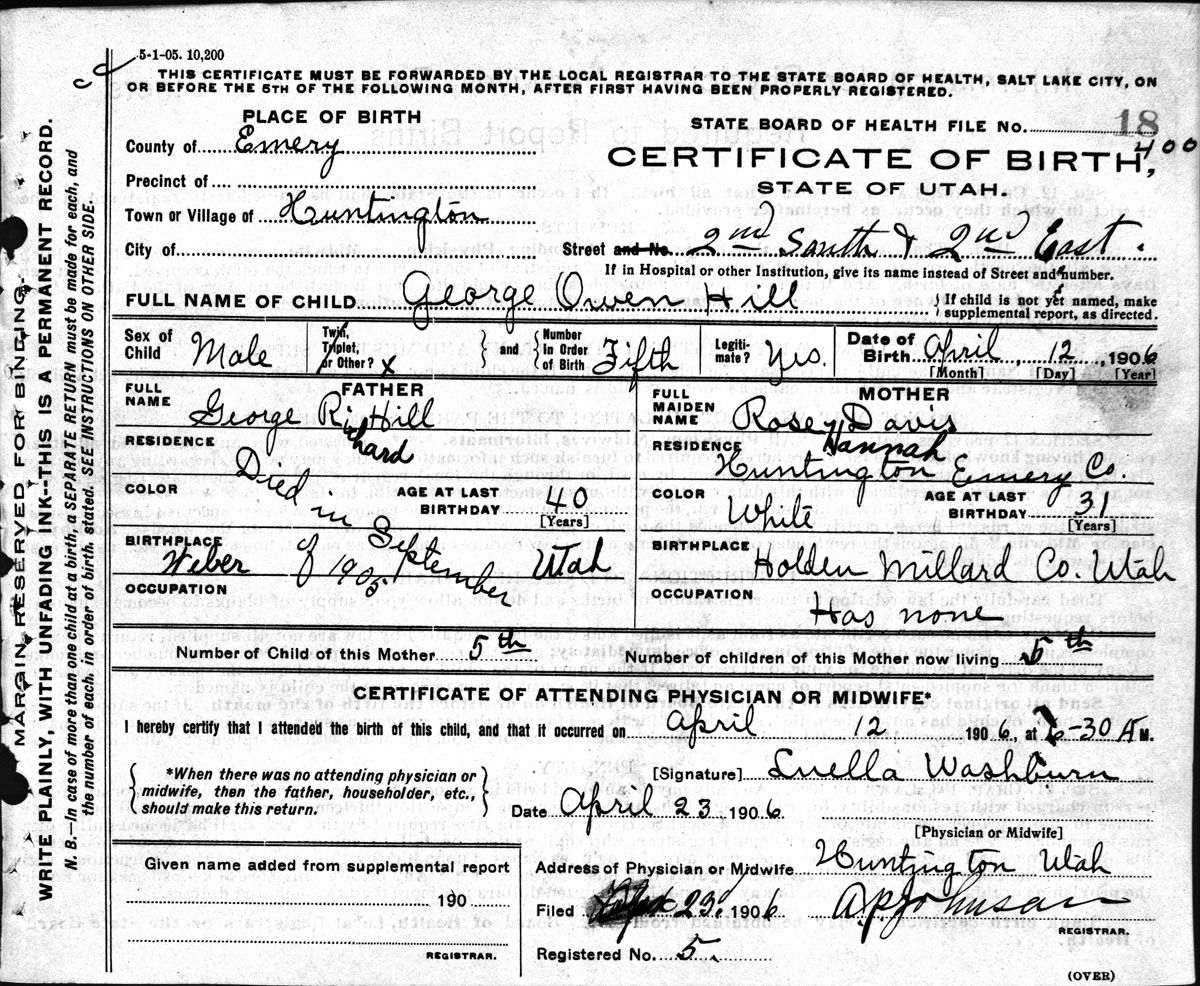 5-1-05. 10,200
THIS CERTIFICATE MUST BE FORWARDED BY THE LOCAL REGISTRAR TO THE STATE BOARD OF HEALTH, SALT LAKE CITY, ON
OR BEFORE THE 5TH OF THE FOLLOWING MONTH, AFTER FIRST HAVING BEEN PROPERLY REGISTERED.
MARGIN RESERVED FOR BINDING.
WRITE PLAINLY, WITH UNFADING INK--THIS IS A PERMANENT RECORD.
N. B.—In case of more than one child at a birth, a SEPARATE RETURN must be made for each, and
the number of each, in order of birth, stated. SEE INSTRUCTIONS ON OTHER SIDE.
PLACE OF BIRTH
County of Emery
Precinct of
Town or Village of Huntington
City of
STATE BOARD OF HEALTH FILE No. 18
400
CERTIFICATE OF BIRTH,
STATE OF UTAH.
Street and No. 2nd South & 2nd East.
If in Hospital or other Institution, give its name instead of Street and number.
FULL NAME OF CHILD George Owen Hill
If child is not yet named, make
supplemental report, as directed.
Sex of Child Male
Twin, Triplet, or Other? x
and
Number in Order of Birth Fifth
Legiti-mate? Yes.
Date of Birth April 12, 1906
[Month] [Day] [Year]
FATHER
FULL NAME George Richard Hill
RESIDENCE
Died in September of 1905
COLOR
AGE AT LAST BIRTHDAY 40
[Years]
BIRTHPLACE
Weber Utah
OCCUPATION
MOTHER
FULL MAIDEN NAME Rose Hannah Davis
RESIDENCE
Huntington Emery Co.
COLOR White
AGE AT LAST BIRTHDAY 31
[Years]
BIRTHPLACE
Holden Millard Co. Utah
OCCUPATION
Has none
Number of Child of this Mother 5th
Number of children of this Mother now living 5th
CERTIFICATE OF ATTENDING PHYSICIAN OR MIDWIFE*
I hereby certify that I attended the birth of this child, and that it occurred on April 12 1906, at 6-30 A M.
*When there was no attending physician or
midwife, then the father, householder, etc.,
should make this return.
[Signature] Luella Washburn
Date April 23, 1906
[Physician or Midwife]
Given name added from supplemental report
190
REGISTRAR.
Address of Physician or Midwife Huntington Utah
Filed 23, 1906
REGISTRAR.
Registered No. 5.
(OVER)